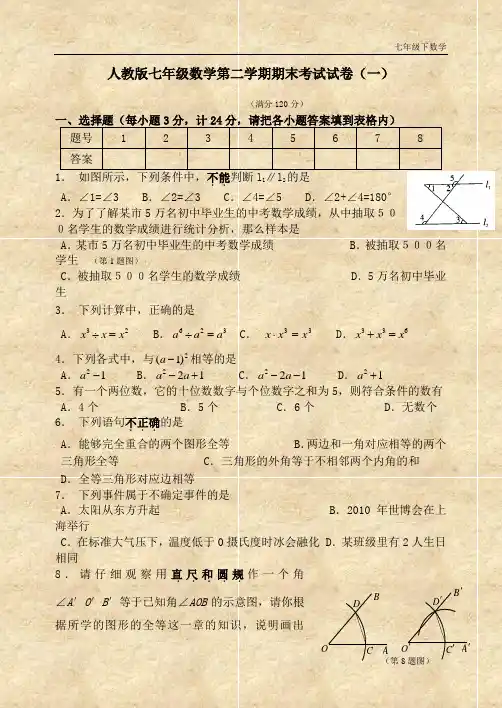 七年级下数学
人教版七年级数学第二学期期末考试试卷（一）
（满分120分）
一、选择题（每小题3分，计24分，请把各小题答案填到表格内）
题号 1 2 3 4 5 6 7 8
答案
1． 如图所示，下列条件中，不能判断l₁∥l₂的是
A．∠1=∠3 B．∠2=∠3 C．∠4=∠5 D．∠2+∠4=180°
5
1 2 l₁
4 3 l₂
2．为了了解某市5万名初中毕业生的中考数学成绩，从中抽取５０
０名学生的数学成绩进行统计分析，那么样本是
A．某市5万名初中毕业生的中考数学成绩 B．被抽取５００名
学生 （第1题图）
C．被抽取５００名学生的数学成绩 D．5万名初中毕业
生
3． 下列计算中，正确的是
A．x³÷x=x² B．a⁶÷a²=a³ C． x·x³=x³ D．x³+x³=x⁶
4．下列各式中，与(a−1)²相等的是
A．a²−1 B．a²−2a+1 C．a²−2a−1 D．a²+1
5．有一个两位数，它的十位数数字与个位数字之和为5，则符合条件的数有
A．4个 B．5个 C．6个 D．无数个
6． 下列语句不正确的是
A．能够完全重合的两个图形全等 B．两边和一角对应相等的两个
三角形全等 C．三角形的外角等于不相邻两个内角的和
D．全等三角形对应边相等
7． 下列事件属于不确定事件的是
A．太阳从东方升起 B．2010 年世博会在上
海举行
C．在标准大气压下，温度低于0摄氏度时冰会融化 D．某班级里有2人生日
相同
8．请仔细观察用直尺和圆规作一个角
∠A′O′B′等于已知角∠AOB的示意图，请你根
据所学的图形的全等这一章的知识，说明画出
B D O C A
B′ D′ O′ C′ A′
（第8题图）